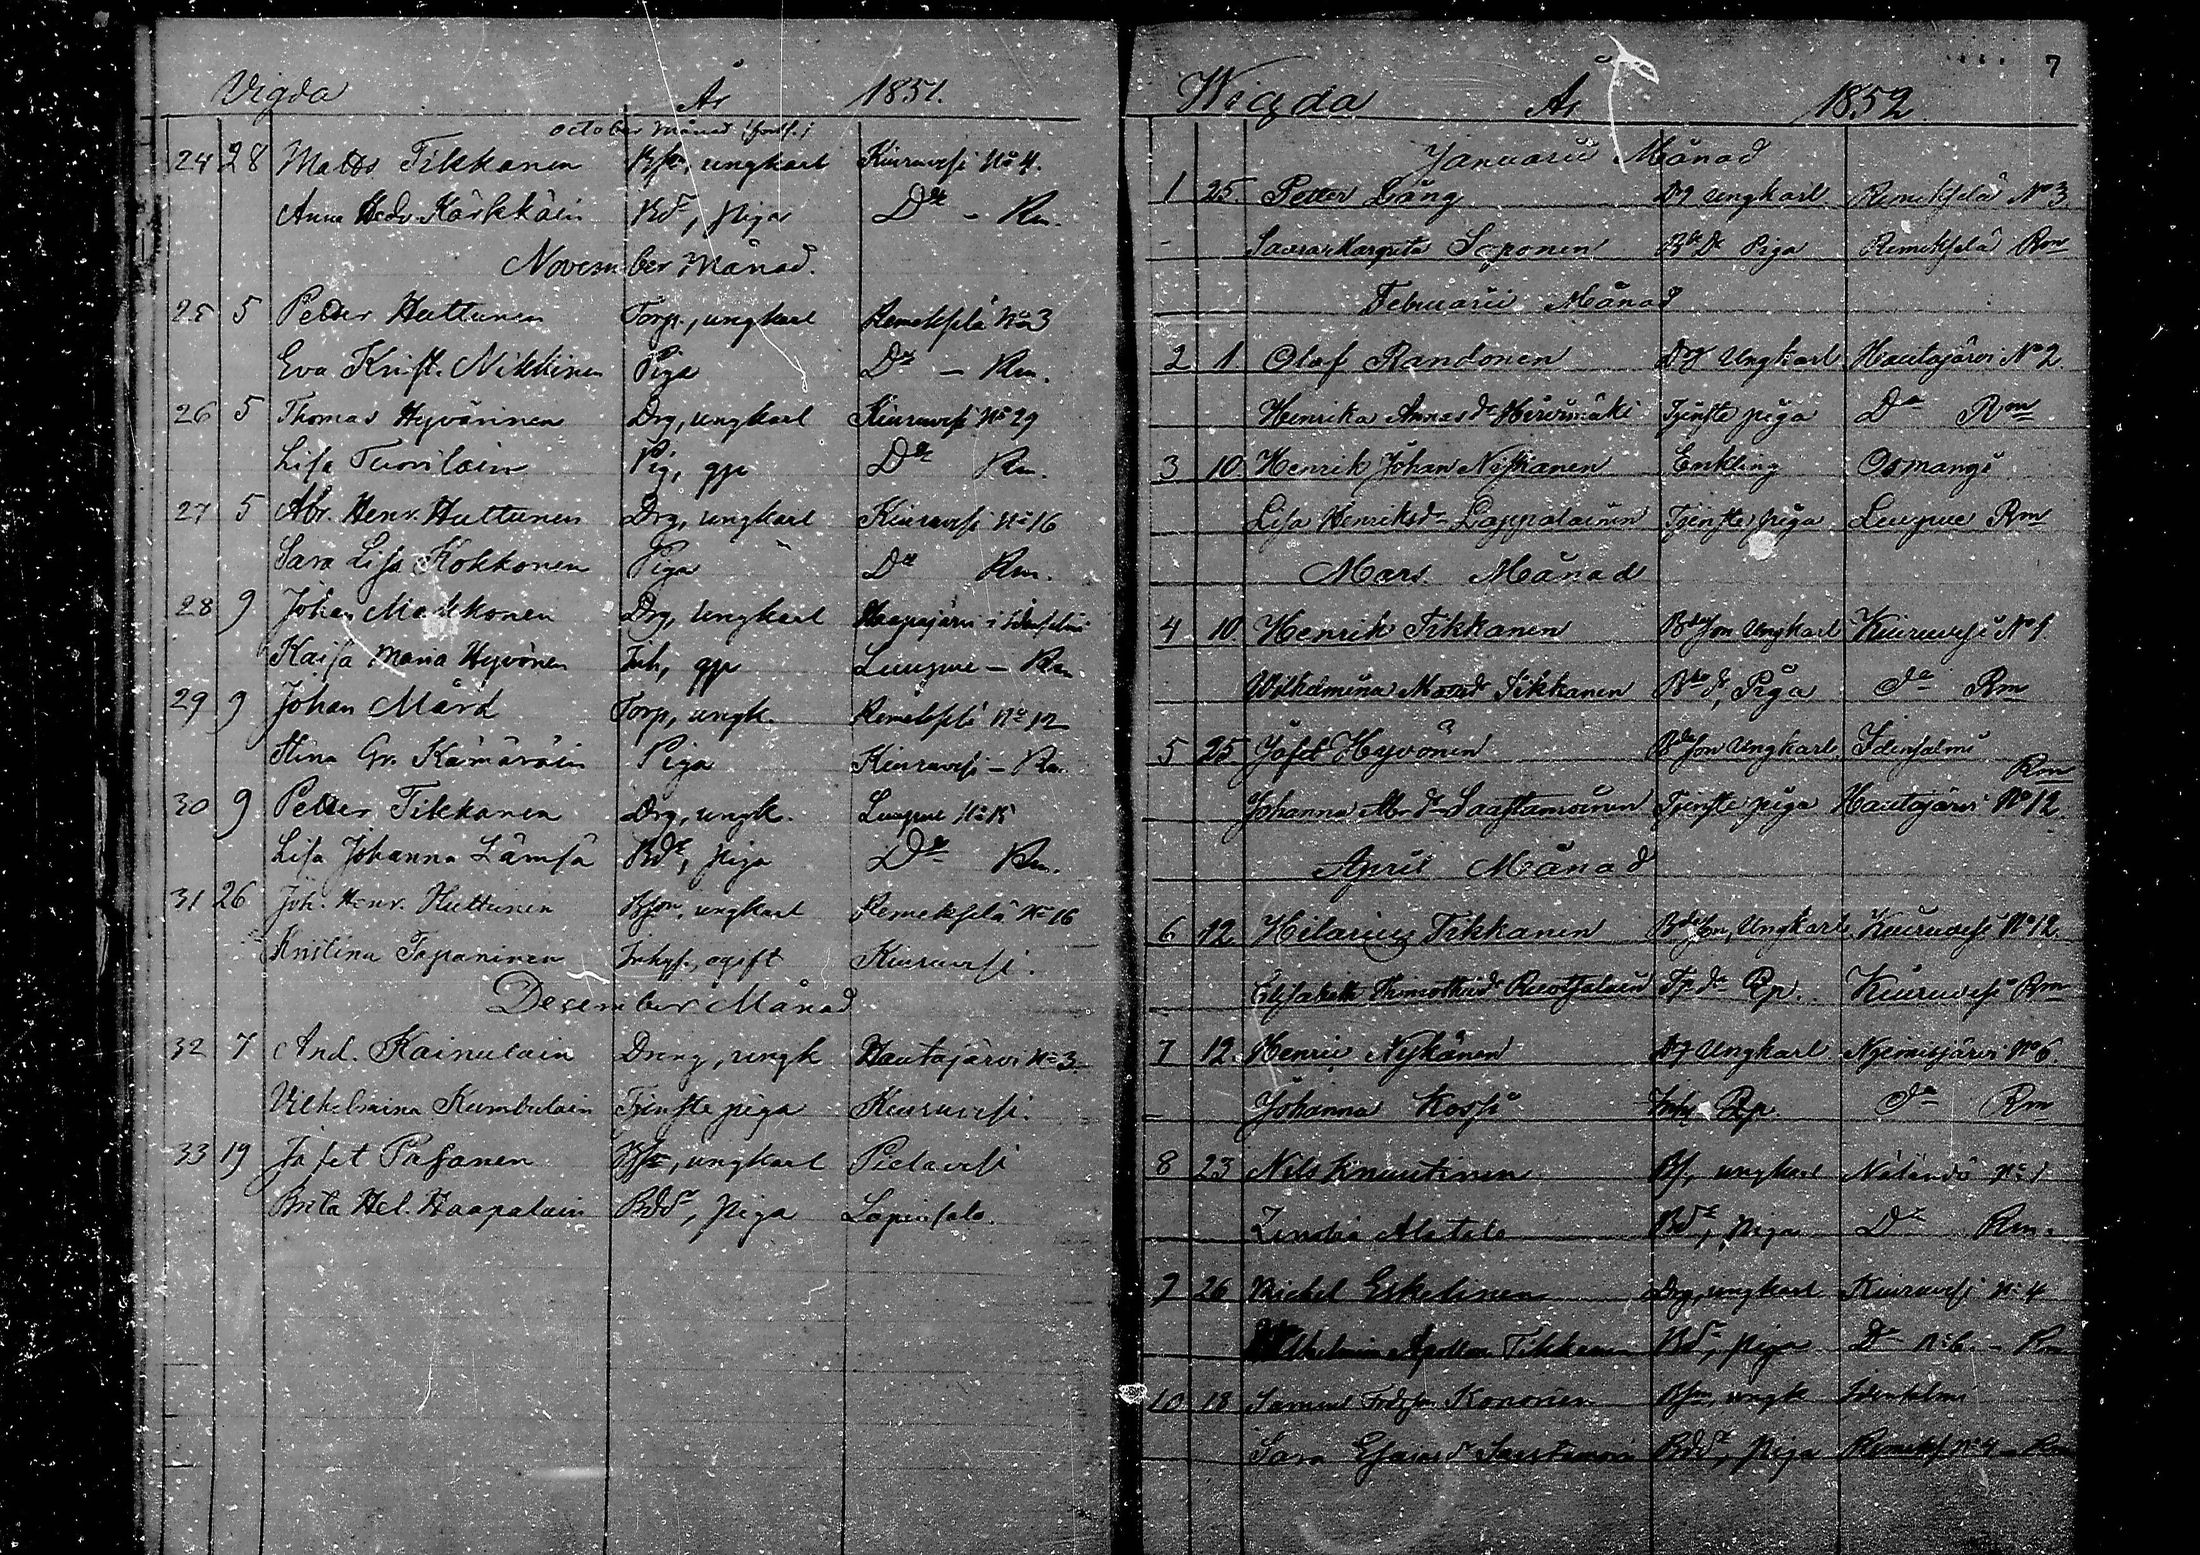 Vigda År 1851.
October Månad (forts.)
24 28 Matts Tikkanen Bson, ungkarl Kiuruvesi No 4.
Anna Hedv. Kärkkäin Bdr, piga Do – Rm.
November Månad.
25 5 Petter Huttunen Torp., ungkarl Remekselä No 3
Eva Krist. Nikkinen Piga Do – Rm.
26 5 Thomas Hyvärinen Drg, ungkarl Kiuruvesi No 29
Lisa Turvilain Pig, gp Do Rm.
27 5 Abr. Henr. Huttunen Drg, ungkarl Kiuruvesi No 16
Sara Lisa Kokkonen Piga Do Rm.
28 9 Johan Markkonen Drg, Ungkarl Haapajärvi i Idensalmi
Kaisa Maria Hyvönen Inh, gp Luupue – Rm
29 9 Johan Mård Torp, ungk. Remekselä No 12
Stina Gr. Kämäräin Piga Kiuruvesi – Rm.
30 9 Petter Tikkanen Drg, ungk. Luupue No 15
Lisa Johanna Lämsä Bdr, piga Do Rm.
31 26 Joh. Henr. Huttunen Bson, ungkarl Remekselä No 16
Kristina Tapaninen Inhys., ogift Kiuruvesi.
December Månad
32 7 And. Kainulain Dreng, ungk Hautajärvi No 3
Vilhelmina Kumbulain Tjenste piga Kiuruvesi.
33 19 Jafet Pasanen Bson, ungkarl Pielavesi
Brita Hel. Haapalain Bddr, piga Lapinsalo.
7
Wigda År 1852
Januarii Månad
1 25. Petter Lång Dg Ungkarl. Remekselä No 3
Saara Margreta Soponen Bde Dr Piga Remekselä Rm
Februarii Månad
2 1 Olof Randonen Drg Ungkarl Hautajärvi No 2.
Henrika Annasdr Hirvimäki Tjenste piga Do Rm
3 10 Henrik Johan Niskanen Enkling Osmangi
Lisa Henriksdr Lappalainen Tjenste piga Luupue Rm
Mars Månad
4 10 Henrik Tikkanen Bdeson Ungkarl Kiuruvesi No 1
Wilhelmina Tikkanen Bde dr, Piga Do Rm
5 25 Jafet Hyvönen Bdeson Ungkarl. Idensalmi
Rm
Johanna Abrdr Saastamoinen Tjenste piga Hautajärvi No 12.
April Månad
6 12. Hilarius Tikkanen Bdeson, Ungkarl Kiuruvesi No 12.
Elisabeth Thimotheidr Ruotsalain Tp dr Pp. Kiuruvesi Rm
7 12. Henric Niskanen Dg Ungkarl Niemisjärvi No 6.
Johanna Kossi Inhs Pp. Do Rm
8 23 Nils Knuutinen Bs, ungkarl Näländö No 1
Zenobia Alatalo Bdr, piga Do Rm.
9 26 Michel Eskelinen Drg, ungkarl Kiuruvesi No 4
Wilhelmina Apollon. Tikkanen Bdr, piga Do No 6. – Rm
10 18 Samuel Kononen Bson, ungk Idensalmi
Sara Esaiasdr Saastamoin Bddr, piga Remeks. No 4 – Rm